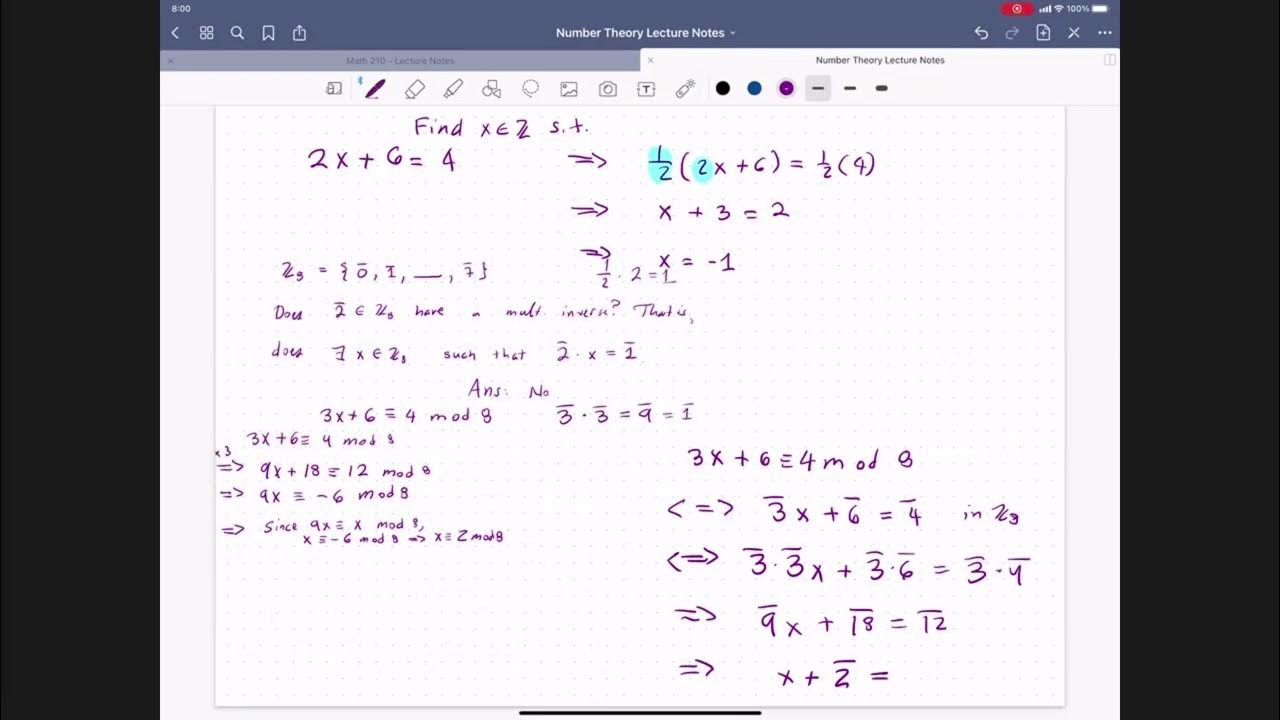 8:00
100%
Number Theory Lecture Notes
Math 210 - Lecture Notes
Number Theory Lecture Notes
Find x ∈ ℤ s.t.
2x + 6 = 4 ⇒ 1/2 (2x + 6) = 1/2 (4)
⇒ x + 3 = 2
⇒ x = -1
1/2 · 2 = 1
ℤ₈ = { 0̄, 1̄, __, 7̄ }
Does 2̄ ∈ ℤ₈ have a mult. inverse? That is,
does ∃ x ∈ ℤ₈ such that 2̄ · x = 1̄
Ans: No
3x + 6 ≡ 4 mod 8 3̄ · 3̄ = 9̄ = 1̄
3x + 6 ≡ 4 mod 8
x3
⇒ 9x + 18 ≡ 12 mod 8
⇒ 9x ≡ -6 mod 8
⇒ Since 9x ≡ x mod 8,
x ≡ -6 mod 8 ⇒ x ≡ 2 mod 8
3x + 6 ≡ 4 mod 8
<=> 3̄x + 6̄ = 4̄ in ℤ₈
<=> 3̄·3̄x + 3̄·6̄ = 3̄·4̄
⇒ 9̄x + 1̄8̄ = 1̄2̄
⇒ x + 2̄ =